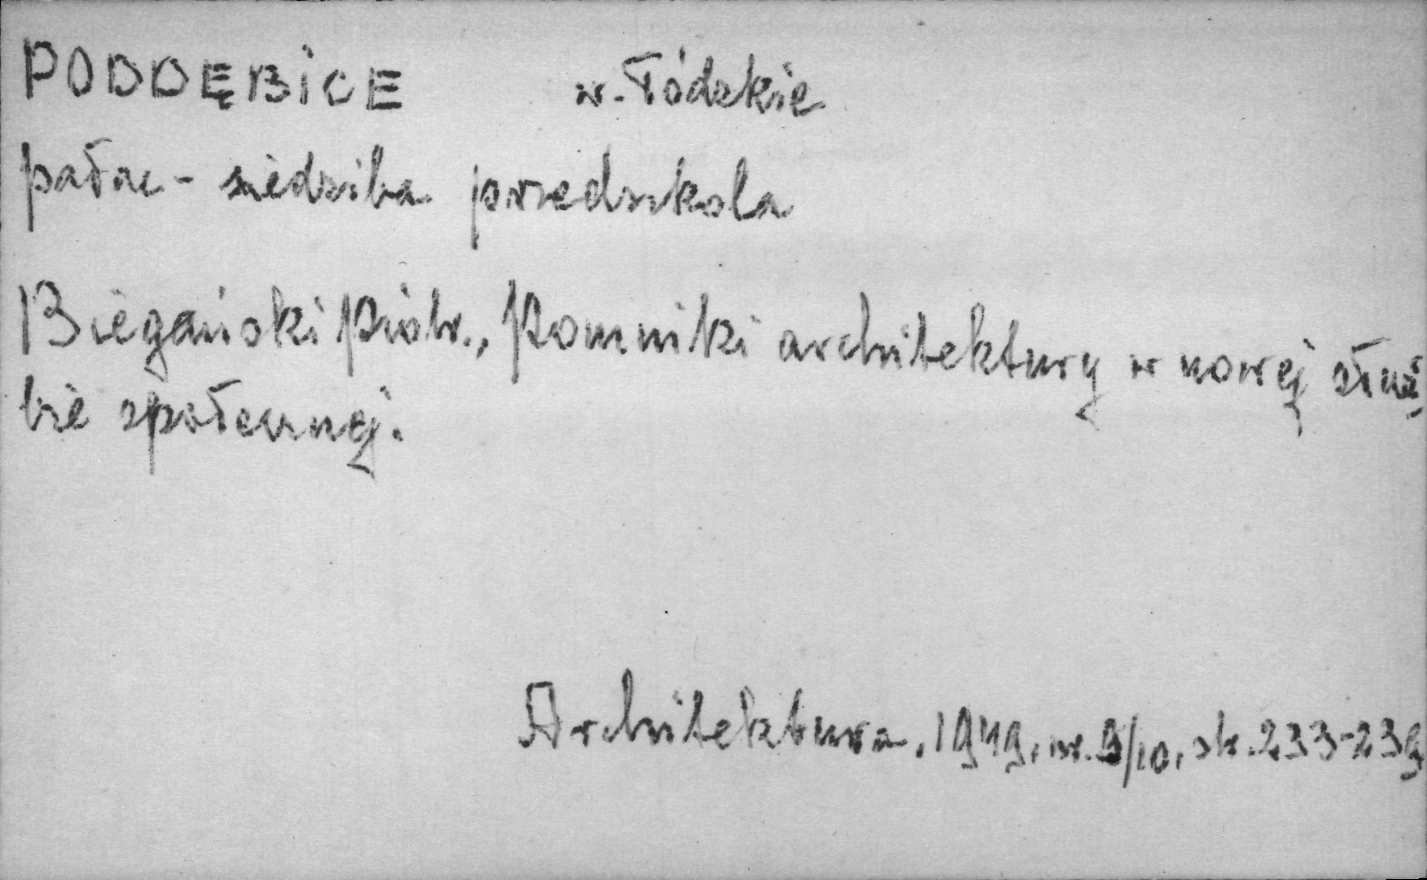 PODDĘBICE w. Łódzkie
pałac - siedziba przedszkola
Biegański Piotr., Pomniki architektury w nowej służ
bie społecznej.
Architektura, 1949, nr. 9/10, str. 233-239